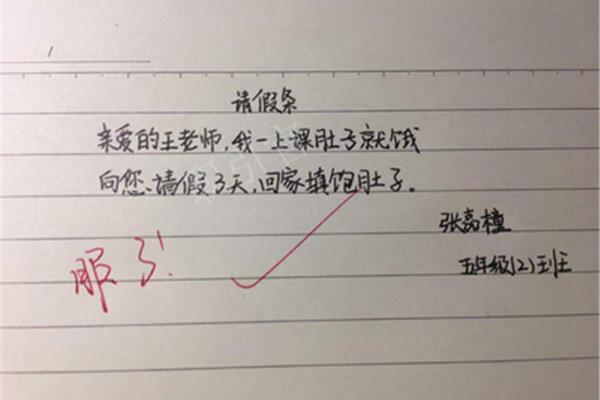 请假条
亲爱的王老师,我一上课肚子就饿
向您、请假3天,回家填饱肚子。
张高橦
五年级(2)班
服了!